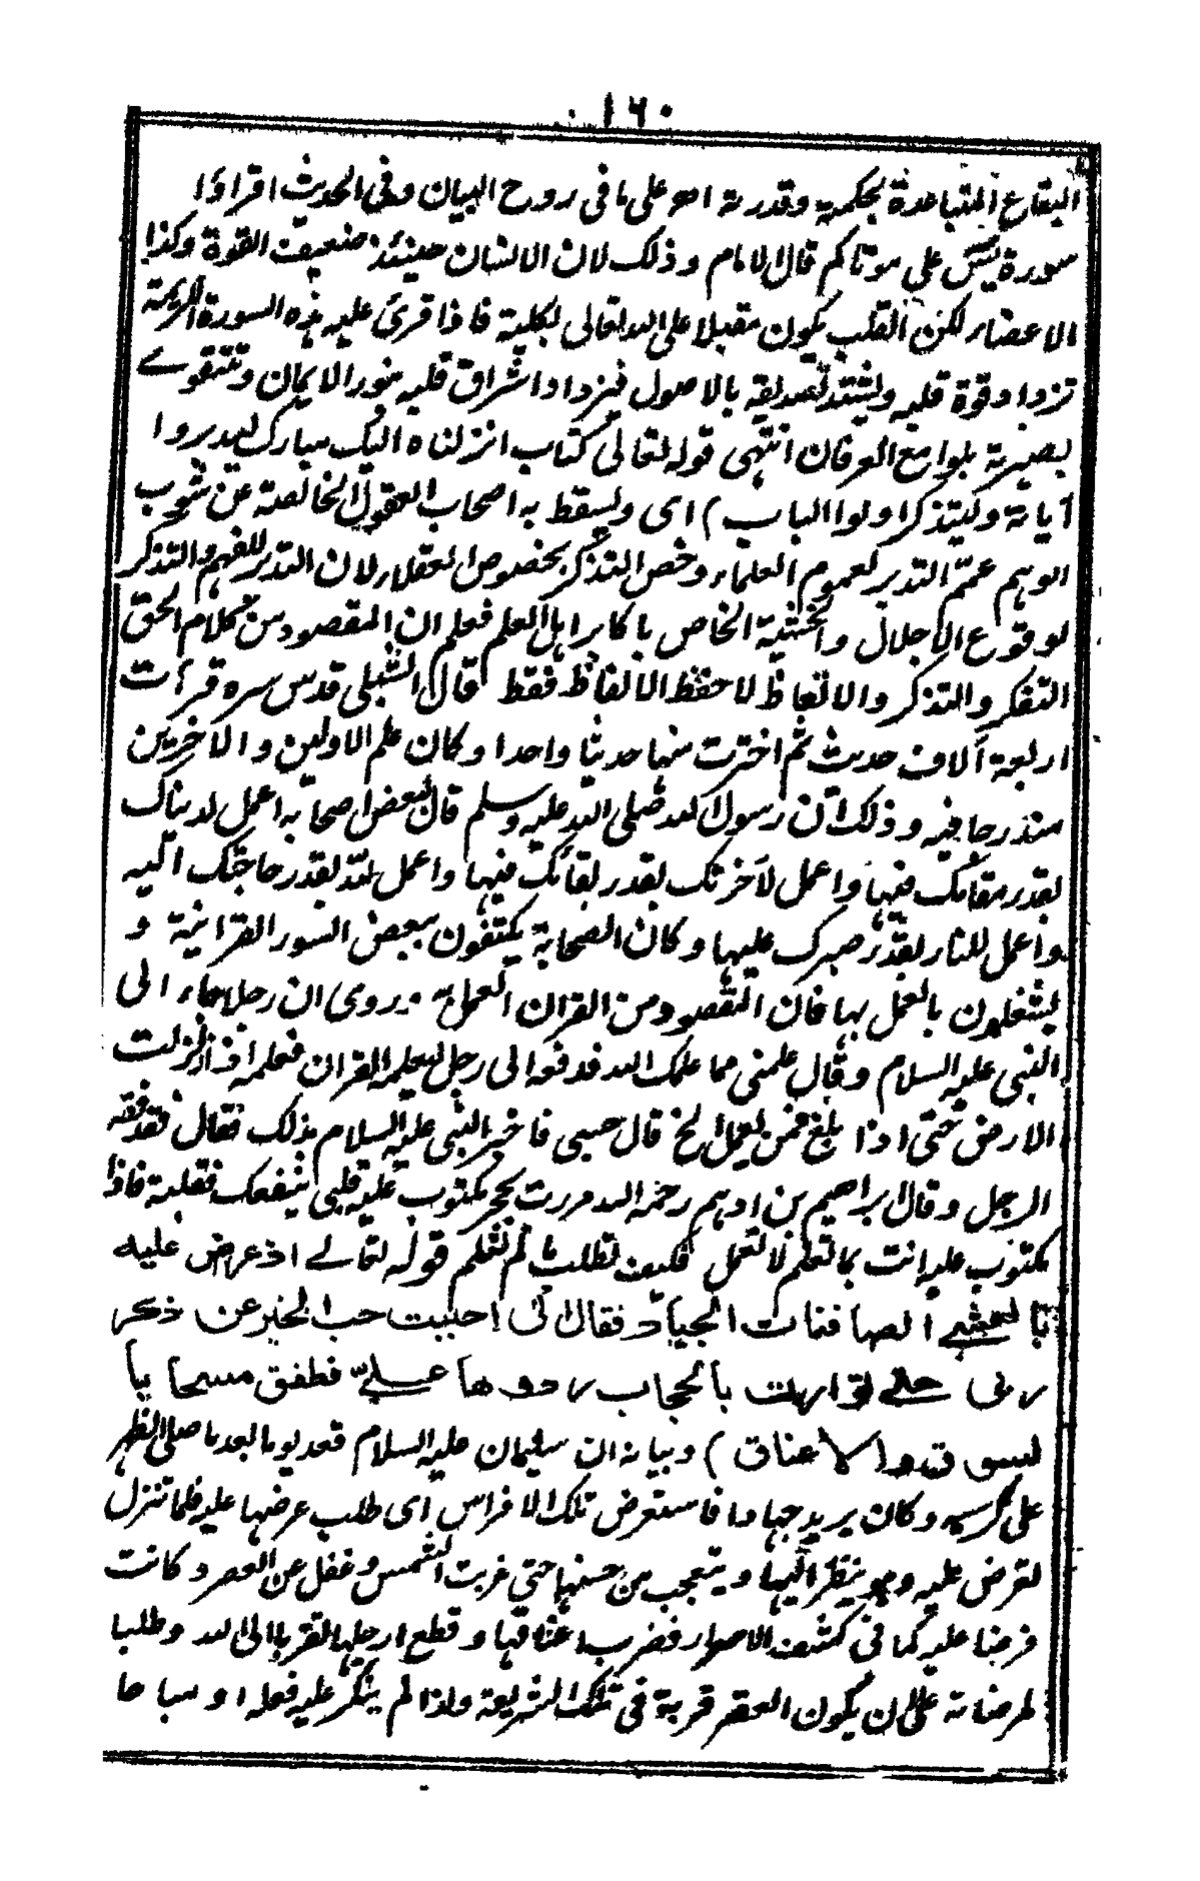 ١٦٠
البقاع المتباعدة بحكمته وقدرته اھ على ما فى روح البيان وفى الحديث اقراؤا
سورة يٰسٓ على موتاكم قال الامام وذلك لان الانسان حينئذ ضعيف القوة وكذا
الاعضاء لكن القلب يكون مقبلا على الله تعالى بكليته فاذا قرئ عليه هذه السورة الكريمة
تزداد قوة قلبه ويشتد تصديقه بالاصول فيزداد اشراق قلبه بنور الايمان وتتقوے
بصيرته بلوامع العرفان انتهى قوله تعالى كتاب انزلناه اليك مبارك ليدبروا
آياته وليتذكر اولوا الباب) اى وليتعظ به اصحاب العقول الخالصة عن شوب
الوهم عمّ التدبر لعموم العلماء وخص التذكر بخصوص العقلاء لان التدبر للفهم والتذكر
لوقوع الاجلال والخشية الخاص باكابر اهل العلم فعلم ان المقصود من كلام الحق
التفكر والتذكر والاتعاظ لا حفظ الالفاظ فقط قال الشبلى قدس سره قرأت
اربعة آلاف حديث ثم اخترت منها حديثا واحدا وكان علم الاولين والاخرين
مندرجا فيه وذلك ان رسول الله صلى الله عليه وسلم قال لبعض اصحابه اعمل لدنياك
بقدر مقامك فيها واعمل لآخرتك بقدر بقائك فيها واعمل لله بقدر حاجتك اليه
واعمل للنار بقدر صبرك عليها وكان الصحابة يكتفون ببعض السور القرانية و
يشتغلون بالعمل بها فان المقصود من القران العمل به روى ان رجلا جاء الى
النبى عليه السلام وقال علمنى مما علمك الله فدفعه الى رجل ليعلمه القران فعلمه اذا زلزلت
الارض حتى اذا بلغ فمن يعمل الخ قال حسبى فاخبر النبى عليه السلام بذلك فقال فقد فقه
الرجل وقال ابراهيم بن ادهم رحمه الله مررت بحجر مكتوب عليه قلبى ينفعك فقلبته فاذا
مكتوب عليه انت بما تعلم لا تعمل فكيف تطلب ما لم تعلم قوله تعالے اذ عرض عليه
بالعشے الصافنات الجياد فقال انى احببت حب الخير عن ذكر
ربى حتے توارت بالحجاب ردوها علے فطفق مسحا با
لسوق والاعناق) وبيانه ان سليمان عليه السلام قعد يوما بعد ما صلى الظهر
على كرسيه وكان يريد جهادا فاستعرض تلك الافراس اى طلب عرضها عليه فلم تزل
تعرض عليه وهو ينظر اليها ويتعجب من حسنها حتى غربت الشمس وغفل عن العصر وكانت
فرضا عليه كما فى كشف الاسرار فضرب اعناقها وقطع ارجلها تقربا الى الله وطلبا
لمرضاته على ان يكون العقر قربة فى تلك الشريعة ولذا لم ينكر عليه فعله او مباحا